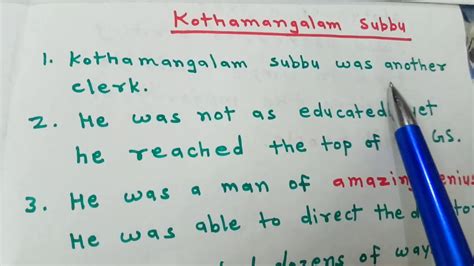 Kothamangalam Subbu
1. Kothamangalam subbu was another
clerk.
2. He was not as educated yet
he reached the top of GS.
3. He was a man of amazing genius
He was able to direct the
dozens of way